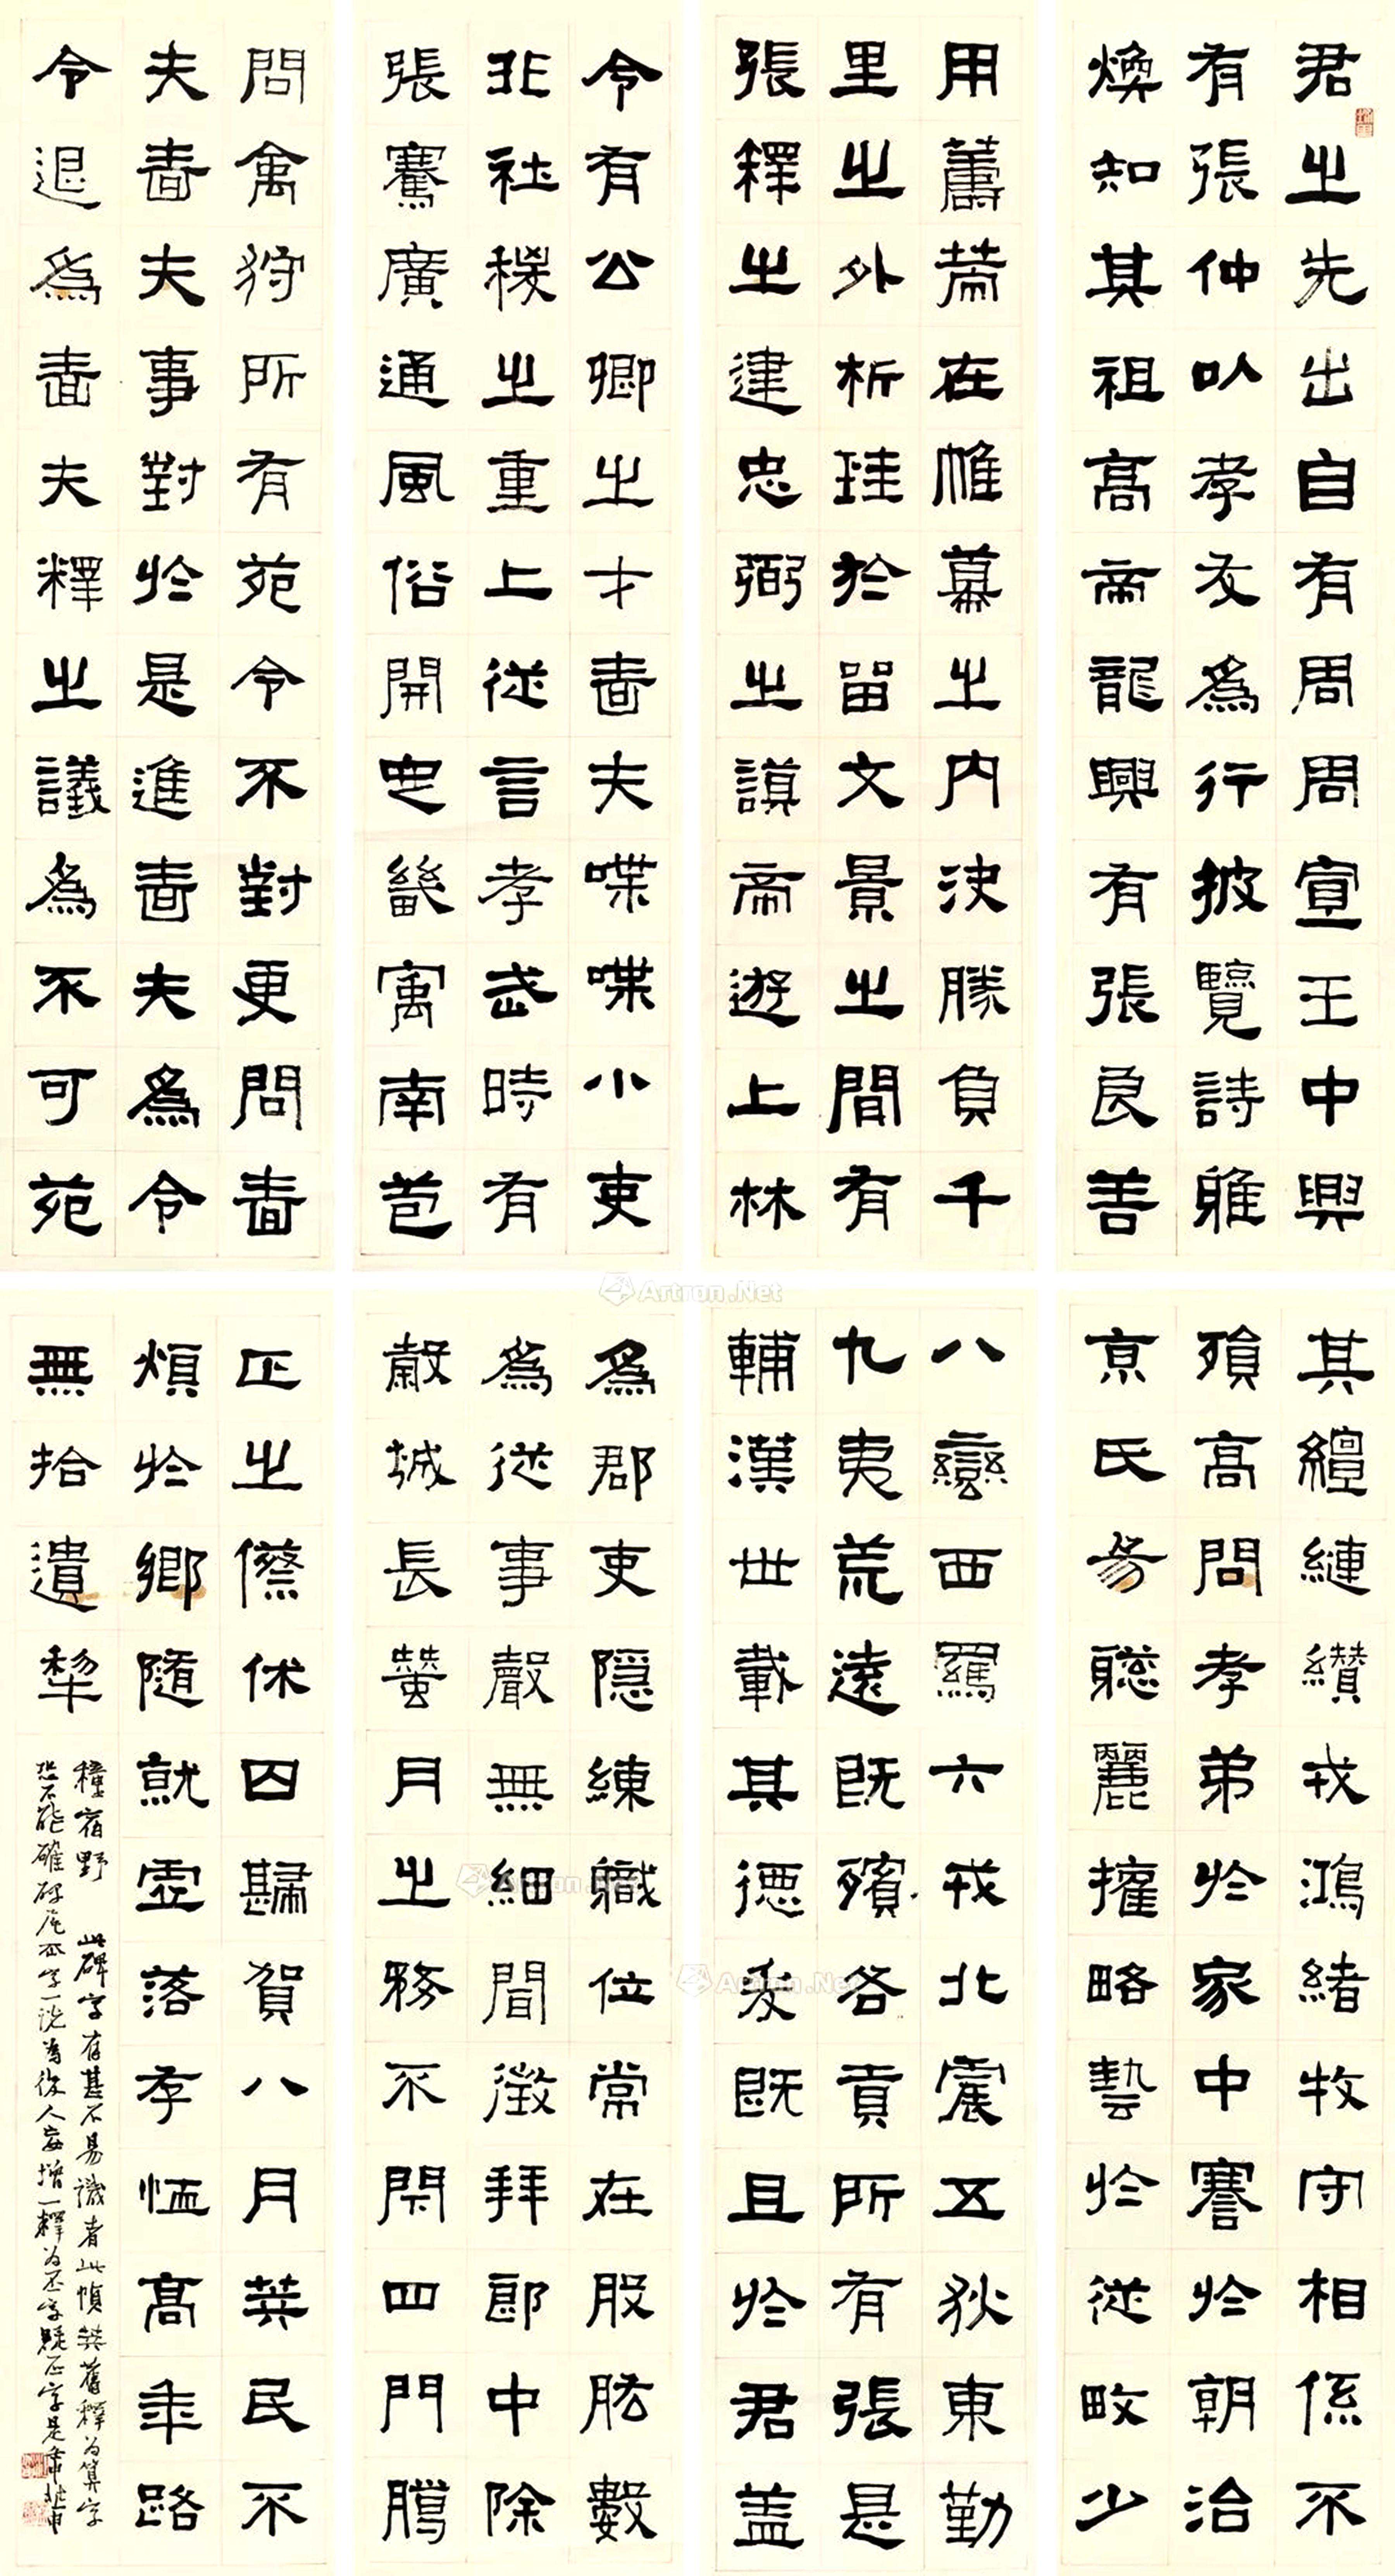 君之先出自有周周宣王中興
有張仲以孝友為行披覽詩雅
煥知其祖高帝龍興有張良善
用籌策在帷幕之內決勝負千
里之外析珪於留文景之間有
張釋之建忠弼之謨帝遊上林
令有公卿之才嗇夫喋喋小吏
非社稷之重上從言孝武時有
張騫廣通風俗開定畿寓南苞
問禽狩所有苑令不對更問嗇
夫嗇夫事對於是進嗇夫為令
令退為嗇夫釋之議為不可苑
其纏縺纘戎鴻緒牧守相係不
殞高問孝弟於家中謇於朝治
京氏易聰麗權略藝於從畋少
八蠻西羈六戎北震五狄東勤
九夷荒遠既殯各貢所有張是
輔漢世載其德爰既且於君蓋
為郡吏隱練職位常在股肱數
為從事聲無細聞徵拜郎中除
穀城長蠶月之務不閉四門臈
正之僚休囚歸賀八月筭民不
煩於鄉隨就虛落存恤高年路
無拾遺犁
種宿野 此碑字有甚不易識者此幀筭舊釋為算字
恐不能確碑尾不字一說為後人妄增一釋為丕字疑正字是
Artron.Net
Artron.Net
Artron.Net